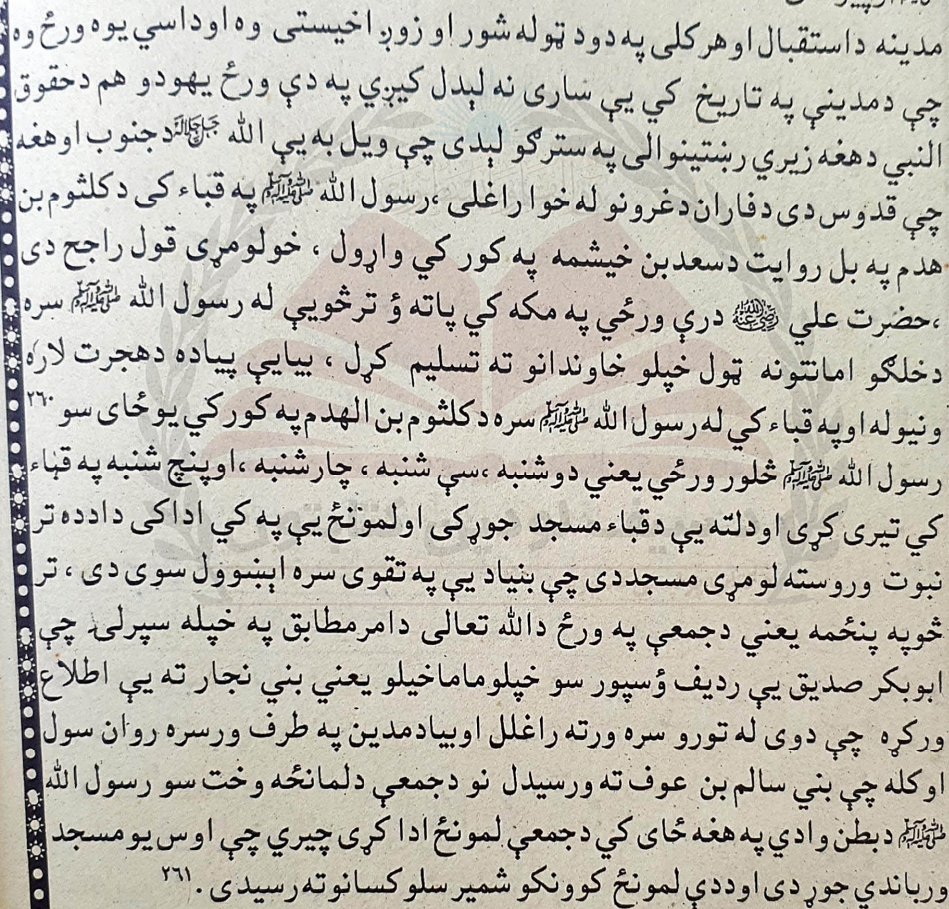 مدینه داستقبال اوهرکلی په دود ټوله شور او زوږ اخیستی وه اوداسي یوه ورځ وه
چي دمدیني په تاریخ کي یې ساری نه لېدل کیږي په دې ورځ یهودو هم دحقوق
النبي دهغه زیري رښتینوالی په سترګو لېدی چي ویل به یې الله ﷻ دجنوب اوهغه
چي قدوس دی دفاران دغرونو له خوا راغلی ،رسول الله ﷺ په قباء کی دکلثوم بن
هدم په بل روایت دسعدبن خیشمه په کور کي واړول ، خولومړی قول راجح دی
،حضرت علي رضي الله عنه درې ورځي په مکه کي پاته ؤ ترڅویې له رسول الله ﷺ سره
دخلګو امانتونه ټول خپلو خاوندانو ته تسلیم کړل ، بیایې پیاده دهجرت لاره
ونیوله اوپه قباء کي له رسول الله ﷺ سره دکلثوم بن الهدم په کورکي یوځای سو ۲۶۰
رسول الله ﷺ څلور ورځي یعني دوشنبه ،سې شنبه ، چارشنبه ،اوپنچ شنبه په قباء
کي تیری کړی اودلته یې دقباء مسجد جوړکی اولمونځ یې په کي اداکی دادده تر
نبوت وروسته لومړی مسجددی چي بنیاد یې په تقوی سره اېښوول سوی دی ، تر
څوپه پنځمه یعني دجمعې په ورځ دالله تعالی دامرمطابق په خپله سپرلی چي
ابوبکر صدیق یې ردیف ؤسپور سو خپلوماماخیلو یعني بني نجار ته یې اطلاع
ورکړه چي دوی له تورو سره ورته راغلل اوبیادمدین په طرف ورسره روان سول
اوکله چي بني سالم بن عوف ته ورسیدل نو دجمعې دلمانځه وخت سو رسول الله
ﷺ دبطن وادي په هغه ځای کي دجمعې لمونځ ادا کړی چیري چي اوس یو مسجد
ورباندي جوړ دی اوددې لمونځ کوونکو شمیر سلو کسانوته رسیدی . ۲۶۱